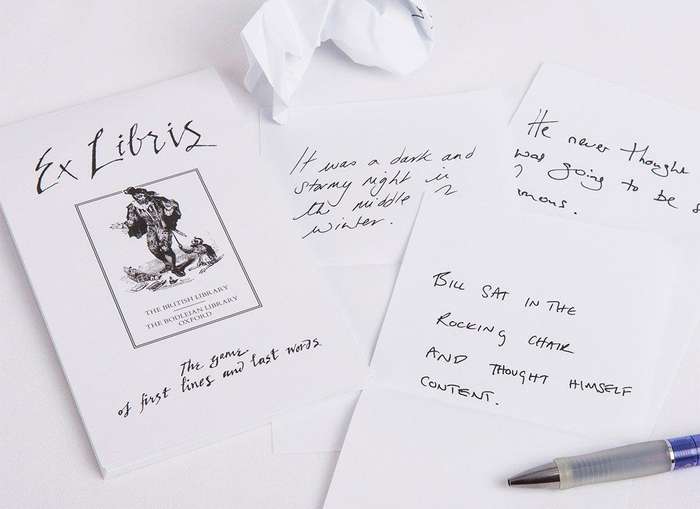 Ex Libris
THE BRITISH LIBRARY
THE BODLEIAN LIBRARY
OXFORD
The game
of first lines and last words.
It was a dark and
stormy night in
the middle
winter.
He never thought
was going to be
BILL SAT IN THE
ROCKING CHAIR
AND THOUGHT HIMSELF
CONTENT.